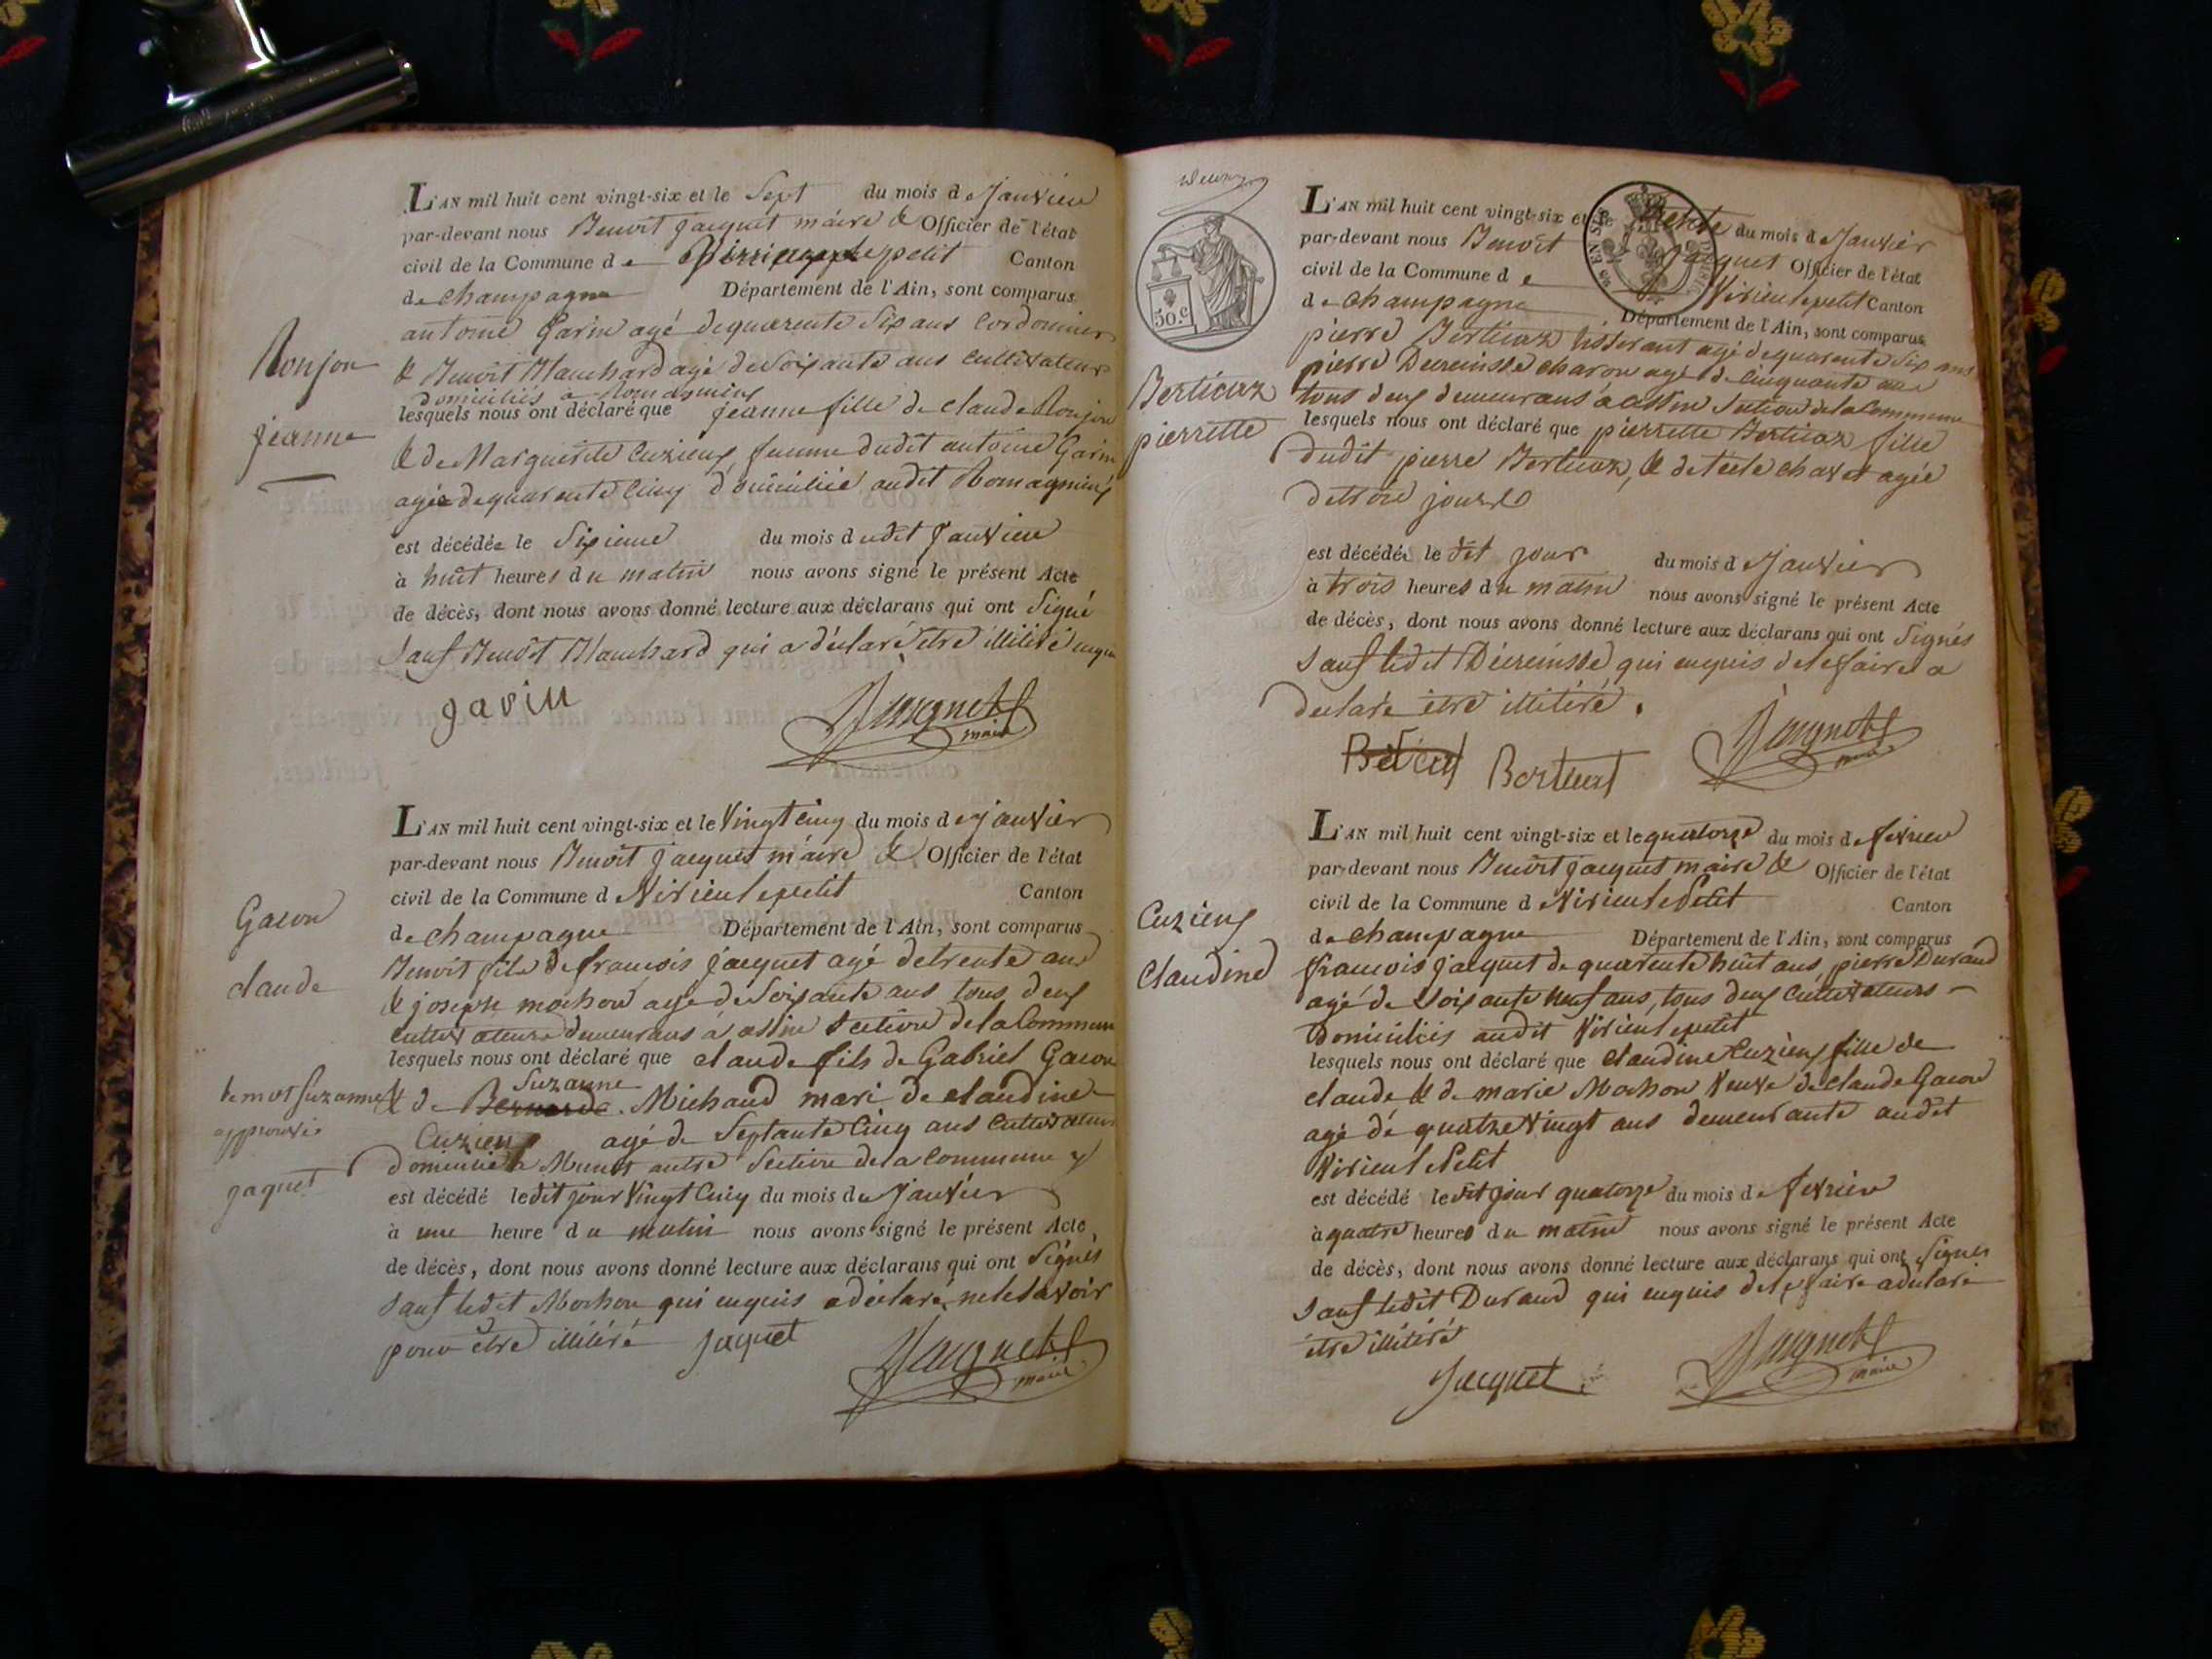 L'AN mil huit cent vingt-six et le Sept du mois de Janvier
par-devant nous Benoit Jacquet maire & Officier de l'état
civil de la Commune de petit Canton
de Champagne Département de l'Ain, sont comparus
antoine Garin agé de quarente Six ans Cordonnier
& Benoit Blanchard agé de Soixante ans Cultivateur
domiciliés a Romagnieu
lesquels nous ont déclaré que jeanne fille de Claude Ronjon
& de Marguerite Cuzieux femme dudit antoine Garin
agée de quarente Cinq domiciliée audit Romagnieu
est décédée le Sixieme du mois dudit Janvier
à huit heures du matin nous avons signé le présent Acte
de décès, dont nous avons donné lecture aux déclarans qui ont Signé
Sauf Benoit Blanchard qui a déclaré être illitéré enquis
garin Jacquet maire
Ronjon
jeanne
L'AN mil huit cent vingt-six et le Vingt Cinq du mois de janvier
par-devant nous Benoit jacquet maire & Officier de l'état
civil de la Commune de Virieu le petit Canton
de Champagne Département de l'Ain, sont comparus
Benoit fils de francois jacquet agé de trente ans
& joseph mochon agé de Soixante ans tous deux
Cultivateurs demeurans à assin Section de la Commune
lesquels nous ont déclaré que claude fils de Gabriel Gacon
Suzanne
& de Bernarde Michaud mari de claudine
Cuzieux agé de Septante Cinq ans Cultivateur
domicilié a autre Section de la Commune
est décédé ledit jour Vingt Cinq du mois de Janvier
à une heure du matin nous avons signé le présent Acte
de décès, dont nous avons donné lecture aux déclarans qui ont Signés
Sauf ledit Mochon qui enquis a déclaré ne le savoir
pour être illitéré Jaquet Jacquet maire
Gacon
claude
le mot Suzanne
approuvé
jaquet
50.c
EN SUS
L'AN mil huit cent vingt-six et le trente du mois de Janvier
par-devant nous Benoit Jacquet Officier de l'état
civil de la Commune de Virieu le petit Canton
de Champagne Département de l'Ain, sont comparus
pierre Bertieux tisserant agé de quarente Six ans
pierre Decreinsse charon agé de Cinquante ans
tous deux demeurans à assin Section de la Commune
lesquels nous ont déclaré que pierrette Bertieux fille
dudit pierre Bertieux, & de técle chavet agée
de trois jours
est décédée le dit jour du mois de Janvier
à trois heures du matin nous avons signé le présent Acte
de décès, dont nous avons donné lecture aux déclarans qui ont Signés
Sauf ledit Décreinsse qui enquis de le faire a
déclaré être illitéré.
Jacquet maire
Bertieux
pierrette
L'AN mil huit cent vingt-six et le quatorze du mois de fevrier
par-devant nous Benoit jacquet maire & Officier de l'état
civil de la Commune de Virieu le Petit Canton
de Champagne Département de l'Ain, sont comparus
francois jacquet de quarente huit ans, pierre Durand
agé de Soixante neuf ans, tous deux Cultivateurs
domiciliés audit Virieu le petit
lesquels nous ont déclaré que claudine Cuzieux fille de
claude & de marie Mochon Veuve de claude Gacon
agé de quatre Vingt ans demeurante audit
Virieu le Petit
est décédé le dit jour quatorze du mois de fevrier
à quatre heures du matin nous avons signé le présent Acte
de décès, dont nous avons donné lecture aux déclarans qui ont Signés
Sauf ledit Durand qui enquis de le faire a déclaré
être illitéré
Jacquet Jacquet maire
Cuzieux
Claudine